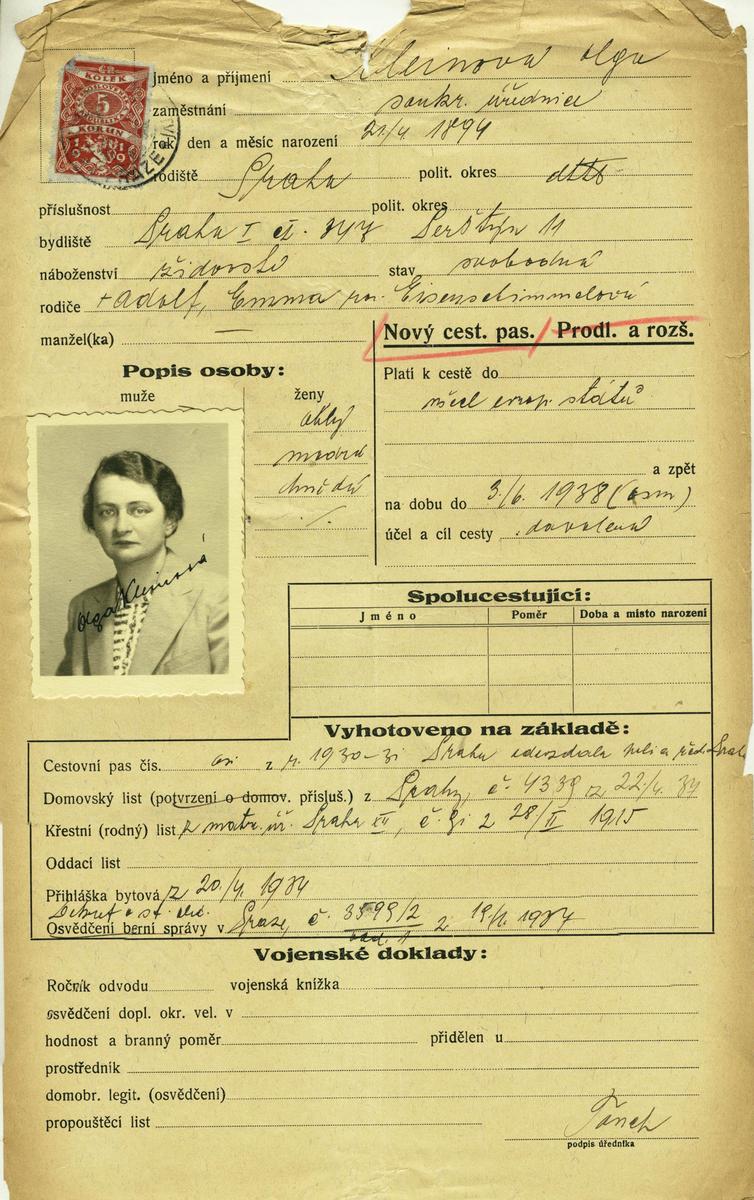 KOLEK
5
KORUN
1919
Jméno a příjmení Kleinová Olga
zaměstnání soukr. úřednice
rok, den a měsíc narození 21/4. 1894
rodiště Praha polit. okres dtto
příslušnost polit. okres
bydliště Praha I 11
náboženství židovské stav svobodná
rodiče + Adolf, Emma roz. Eisenschimmelová
manžel(ka) —
Nový cest. pas. / Prodl. a rozš.
Popis osoby:
muže ženy
oblý
modré
hnědé
./.
Platí k cestě do
všech evrop. států
a zpět
na dobu do 3./6. 1938 (osm)
účel a cíl cesty dovolená
Olga Kleinová
Spolucestující:
Jméno Poměr Doba a místo narození
Vyhotoveno na základě:
Cestovní pas čís. z r. 1930-31 Praha
Domovský list (potvrzení o domov. přísluš.) z Prahy, č. 4339 z 22./4. 34
Křestní (rodný) list z matr. úř. Praha č. 31 z 28/II 1915
Oddací list
Přihláška bytová z 20/4. 1934
Osvědčení berní správy v Praze, č. 3599/2 z 1934
Vojenské doklady:
Ročník odvodu vojenská knížka
osvědčení dopl. okr. vel. v
hodnost a branný poměr přidělen u
prostředník
domobr. legit. (osvědčení)
propouštěcí list
podpis úředníka